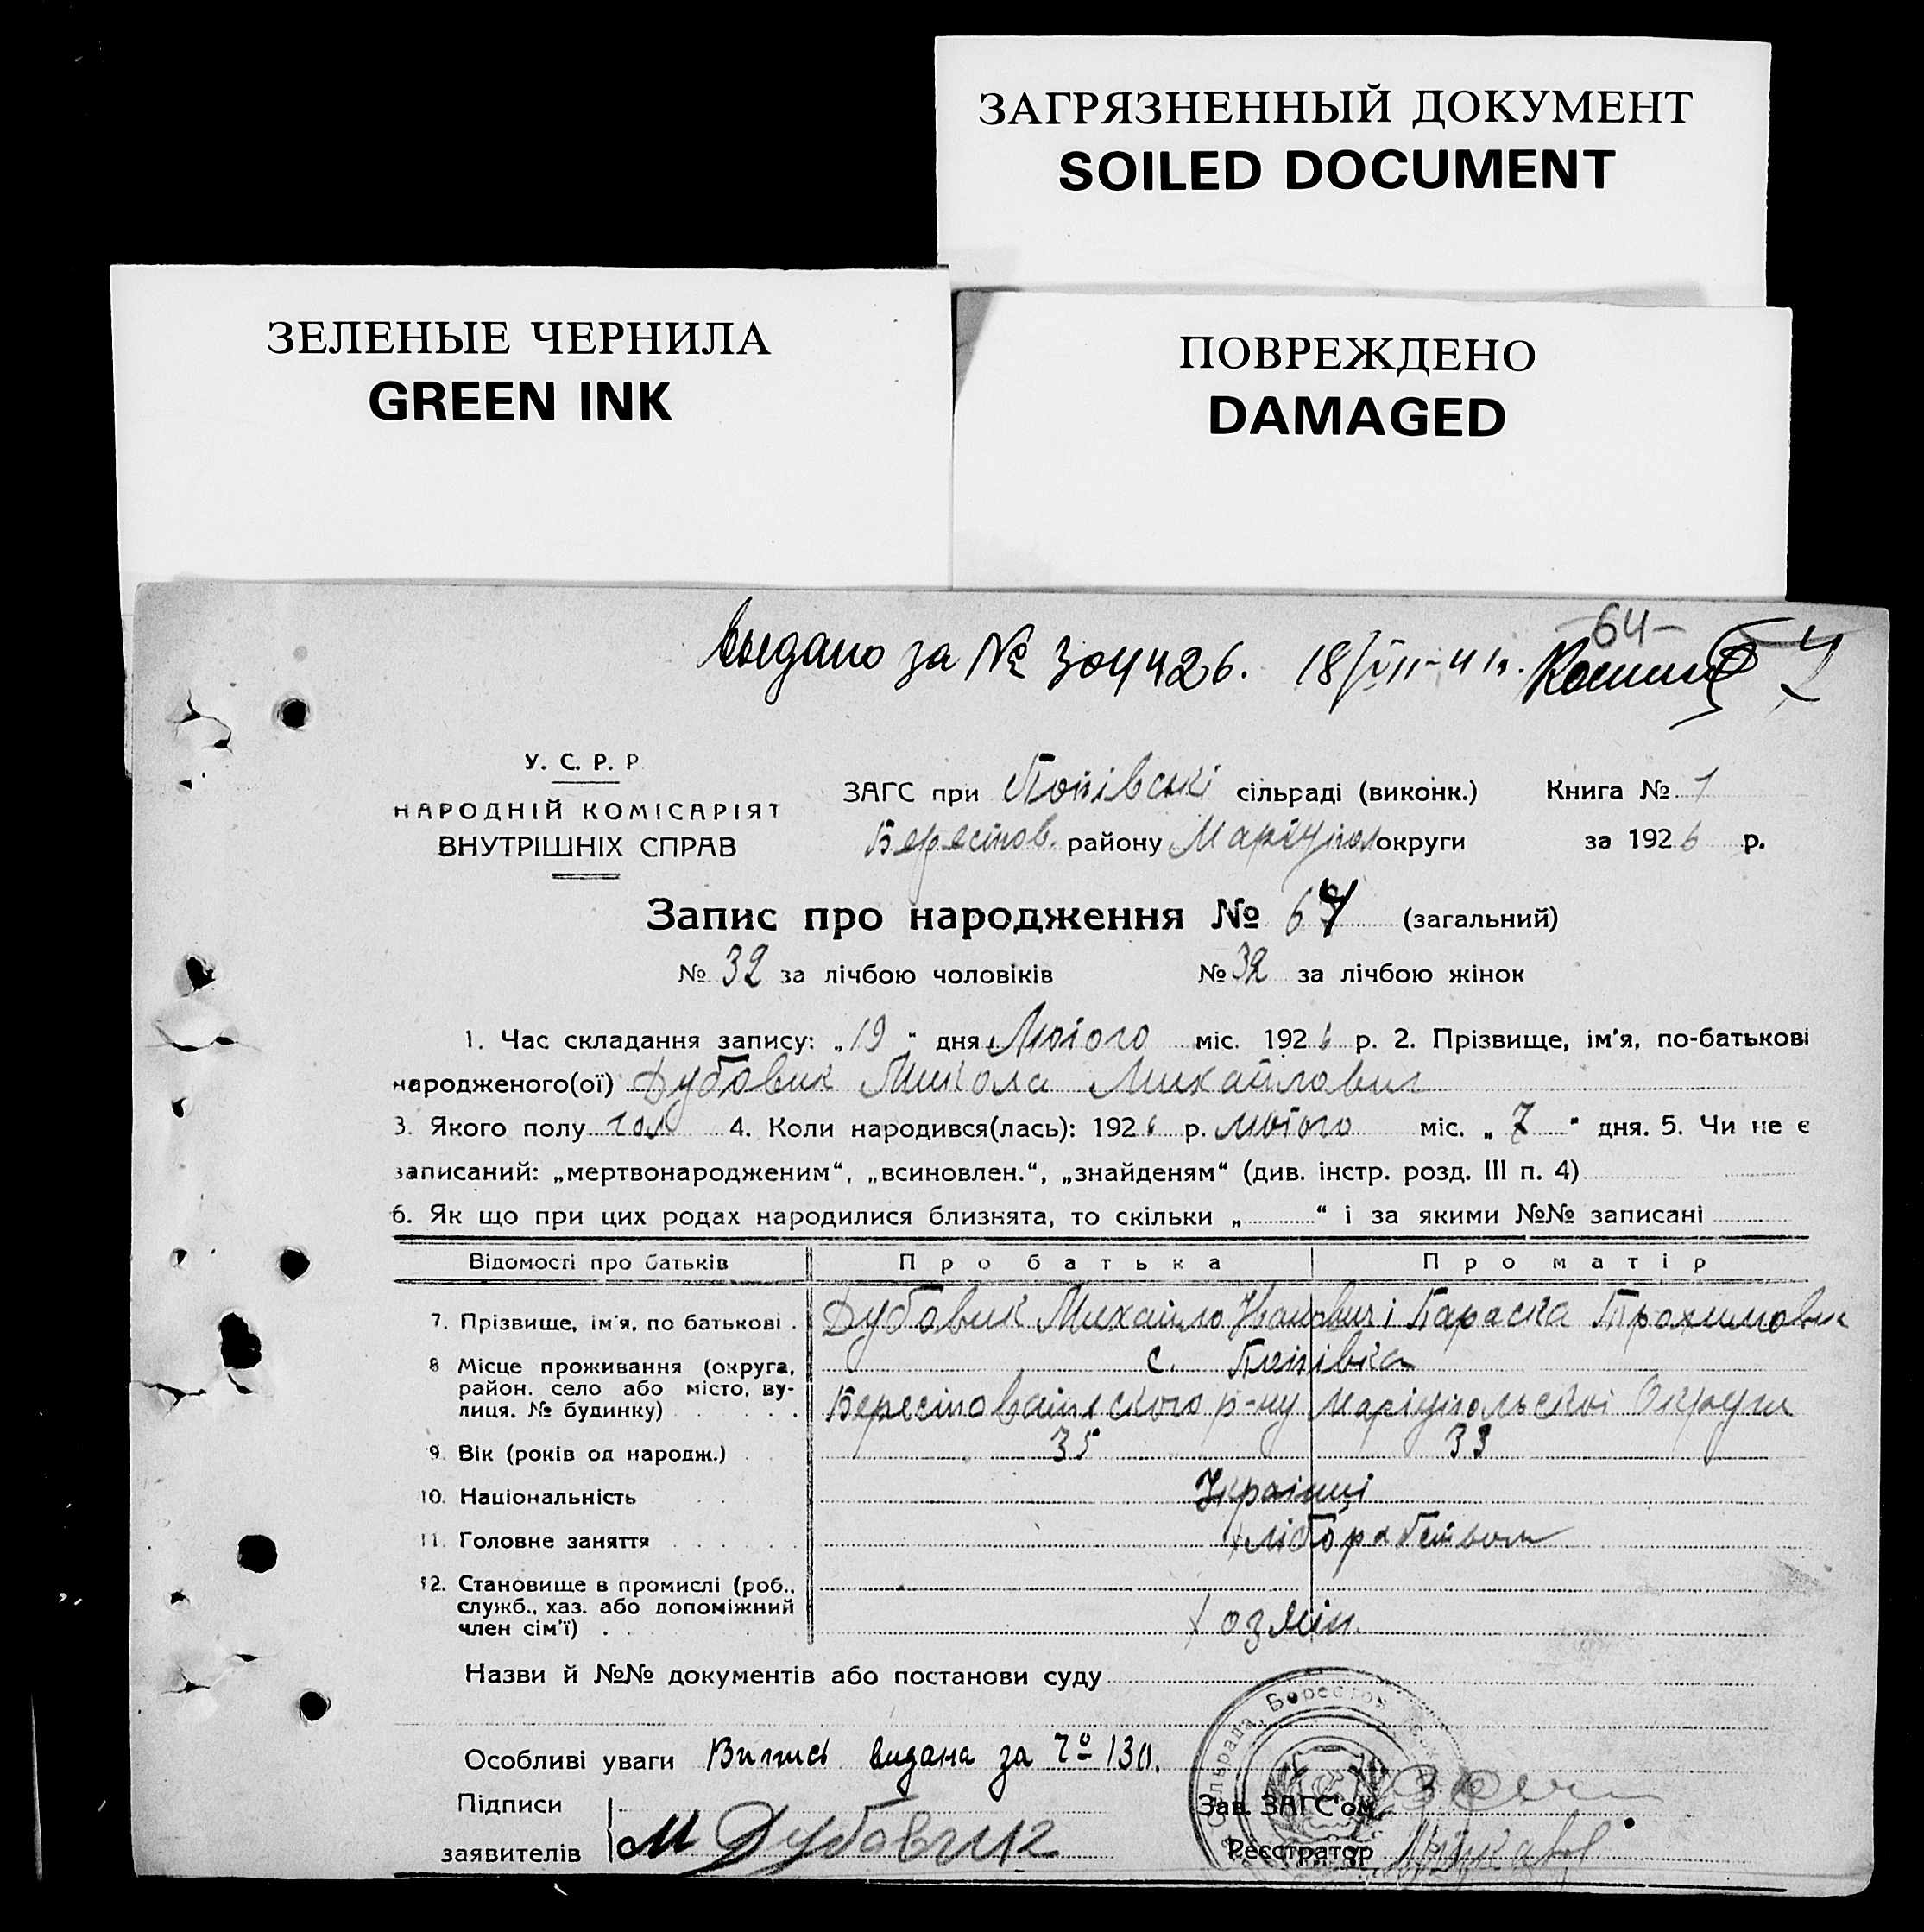 ЗАГРЯЗНЕННЫЙ ДОКУМЕНТ
SOILED DOCUMENT
ЗЕЛЕНЫЕ ЧЕРНИЛА
GREEN INK
ПОВРЕЖДЕНО
DAMAGED
-64-
Выдано за № 304426. 18/VII-41г.
У. С. Р. Р
НАРОДНІЙ КОМІСАРІЯТ
ВНУТРІШНІХ СПРАВ
ЗАГС при Попівські сільраді (виконк.) Книга № 1
Берестов. району Маріупол округи за 1926 р.
Запис про народження № 64 (загальний)
№ 32 за лічбою чоловіків № 32 за лічбою жінок
1. Час складання запису: „19" дня Лютого міс. 1926 р. 2. Прізвище, ім'я, по-батькові
народженого(ої) Дубовик Микола Михайлович
3. Якого полу чол 4. Коли народився(лась): 1926 р. лютого міс. „7" дня. 5. Чи не є
записаний: „мертвонародженим", „всиновлен.", „знайденям" (див. інстр. розд. III п. 4)
6. Як що при цих родах народилися близнята, то скільки „ " і за якими №№ записані
Відомості про батьків Про батька Про матір
7. Прізвище, ім'я, по батькові . Дубовик Михайло Іванович і Параска Трохимовн
8 Місце проживання (округа, с. Попівка
район. село або місто, ву-
лиця. № будинку) Берестоватського р-ну Маріупольської Округи
9. Вік (років од народж.) 35 33
10. Національність Українці
11. Головне заняття хліборобством
12. Становище в промислі (роб.,
служб., хаз. або допоміжний
член сім'ї) Хозяїн.
Назви й №№ документів або постанови суду
Особливі уваги Випись видана за № 130.
Підписи
заявителів М Дубовик
Зав. ЗАГС'ом
Реєстратор